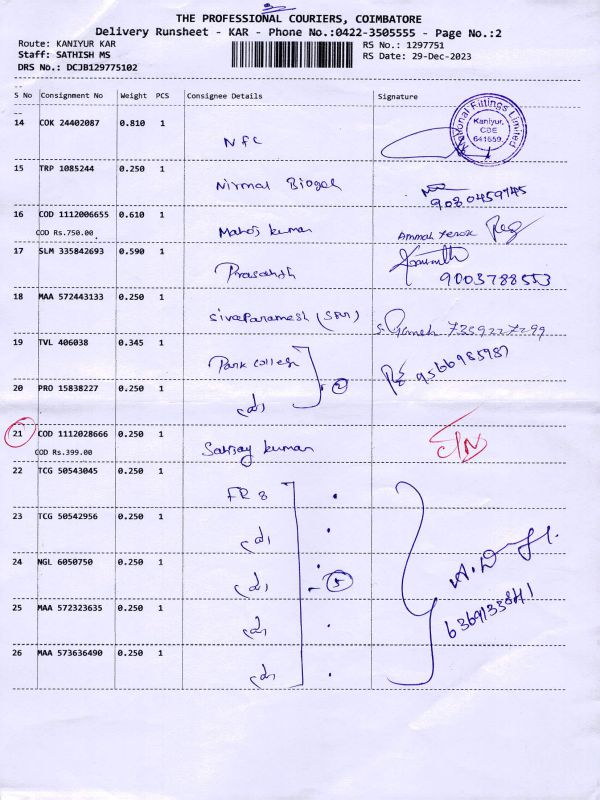 THE PROFESSIONAL COURIERS, COIMBATORE
Delivery Runsheet - KAR - Phone No.:0422-3505555 - Page No.:2
Route: KANIYUR KAR
RS No.: 1297751
Staff: SATHISH MS
RS Date: 29-Dec-2023
DRS No.: DCJB129775102
S No Consignment No Weight PCS Consignee Details Signature
14 COK 24402087 0.810 1 NFC
National Fittings Limited
Kaniyur,
CBE
641659.
15 TRP 1085244 0.250 1 Nirmal
16 COD 1112006655 0.610 1 Manoj kumar
COD Rs.750.00
17 SLM 335842693 0.590 1 Prasanth
9003788553
18 MAA 572443133 0.250 1 Sivaparamesh
19 TVL 406038 0.345 1 Park college
9566985987
20 PRO 15838227 0.250 1
2
21 COD 1112028666 0.250 1 Sanjay kumar
COD Rs.399.00
C/N
22 TCG 50543045 0.250 1 FR 8
23 TCG 50542956 0.250 1
24 NGL 6050750 0.250 1
5
25 MAA 572323635 0.250 1
26 MAA 573636490 0.250 1